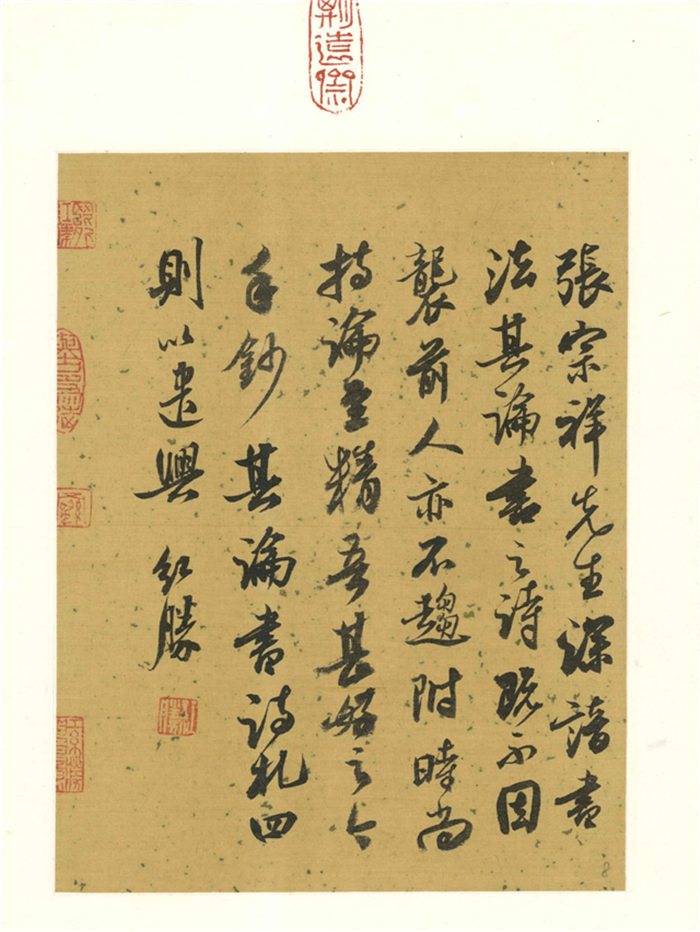 張宗祥先生深諳書
法其論書之詩既不因
襲前人亦不趨附時尚
持論至精吾甚好之今
手鈔其論書詩札四
則以遣興 紅勝
8